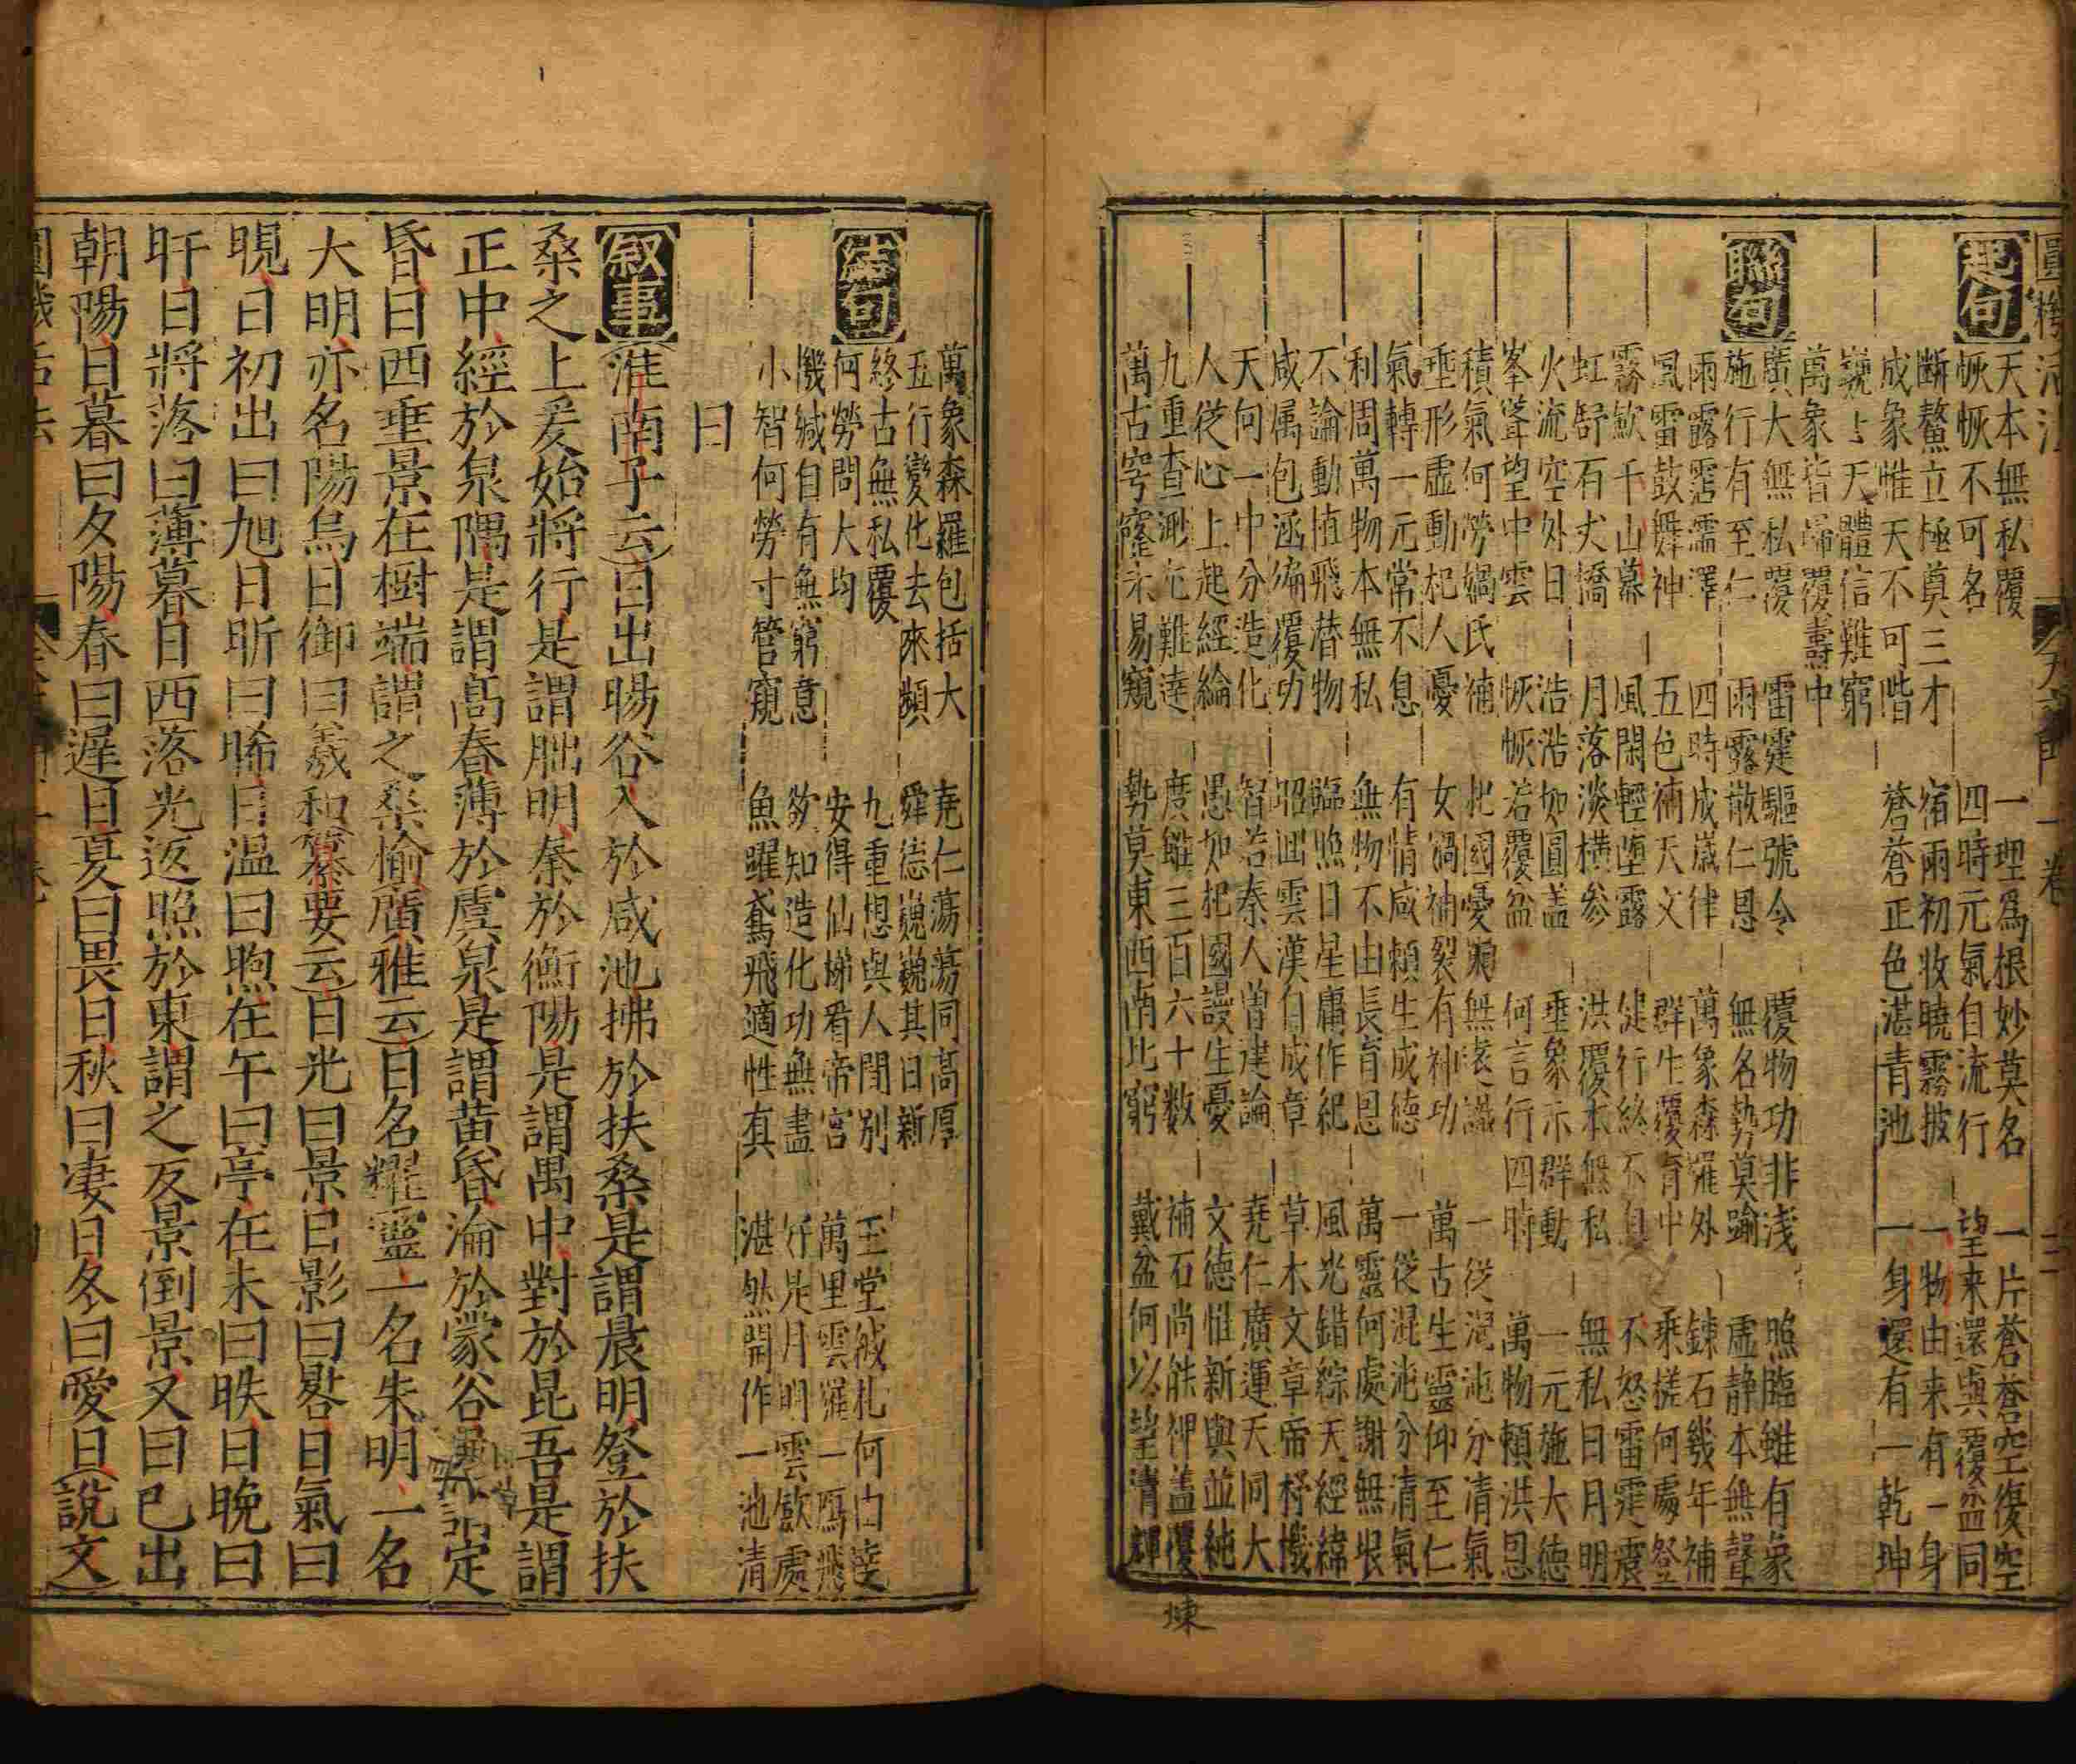 圓機活法 天文門 一卷 三
起句
天本無私覆 一理爲根妙莫名 一片蒼蒼空復空
恢恢不可名 四時元氣自流行 望来還與覆盆同
斷鰲立極奠三才 宿雨初收曉霧披 一物由来有一身
成象惟天不可階 蒼蒼正色湛青池 一身還有一乾坤
巍上天體信難窮
萬象皆歸覆燾中
聯句
廣大無私覆 雷霆驅號令 覆物功非淺 照臨雖有象
施行有至仁 雨露散仁恩 無名勢莫踰 虛静本無聲
雨露霑濡澤 四時成歲律 萬象森羅外 鍊石幾年補
風雷鼓舞神 五色補天文 群生覆育中 乘槎何處登
霧歛千山幕 風閑輕墮露 健行終不息 不怒雷霆震
虹舒石丈橋 月落淡横參 洪覆本無私 無私日月明
火流空外日 浩浩如圓盖 垂象示群動 一元施大德
峯聳望中雲 恢恢若覆盆 何言行四時 萬物頼洪恩
積氣何勞媧氏補 杞國憂来無遠議 一從混沌分清氣
垂形虛動杞人憂 女媧補裂有神功 萬古生靈仰至仁
氣轉一元常不息 有情咸頼生成德 一從混沌分清氣
利周萬物本無私 無物不由長育恩 萬靈何處謝無垠
不論動植飛替物 臨照日星庸作紀 風光錯綜天經緯
咸属包涵徧覆功 昭回雲漢自成章 草木文章帝杼機
天何一中分造化 智若秦人曾建論 堯仁廣運天同大
人從心上起經綸 愚如杞國謾生憂 文德惟新與並純
九重查渺尤難達 廣雖三百六十數 補石尚能裨盖覆
萬古穹窿未易窺 勢莫東西南北窮 戴盆何以望清輝
結句
萬象森羅包括大 堯仁蕩蕩同高厚
五行變化去來頻 舜德巍巍其日新
終古無私覆 九重想與人間別 玉堂緘札何由達
何勞問大均 安得仙梯看帝宮 萬里雲羅一鴈飛
機緘自有無窮意 欲知造化功無盡 好是月明雲歛處
小智何勞寸管窺 魚躍鳶飛適性真 湛然開作一池清
日
叙事 淮南子云日出暘谷入於咸池拂於扶桑是謂晨明登於扶
桑之上爰始將行是謂朏明㮣於衡陽是謂禺中對於昆吾是謂
正中經於泉隅是謂高舂薄於虞泉是謂黃昏淪於蒙谷是謂定
昏日西垂景在樹端謂之桑榆廣雅云日名耀靈一名朱明一名
大明亦名陽烏日御曰羲和纂要云日光曰景日影曰晷日氣曰
晛日初出曰旭日昕曰晞日温曰煦在午曰亭在未曰昳日晚曰
旰日將落曰薄暮日西落光返照於東謂之反景倒景又曰已出
朝陽日暮曰夕陽春曰遲日夏曰畏日秋曰凄日冬曰愛日說文